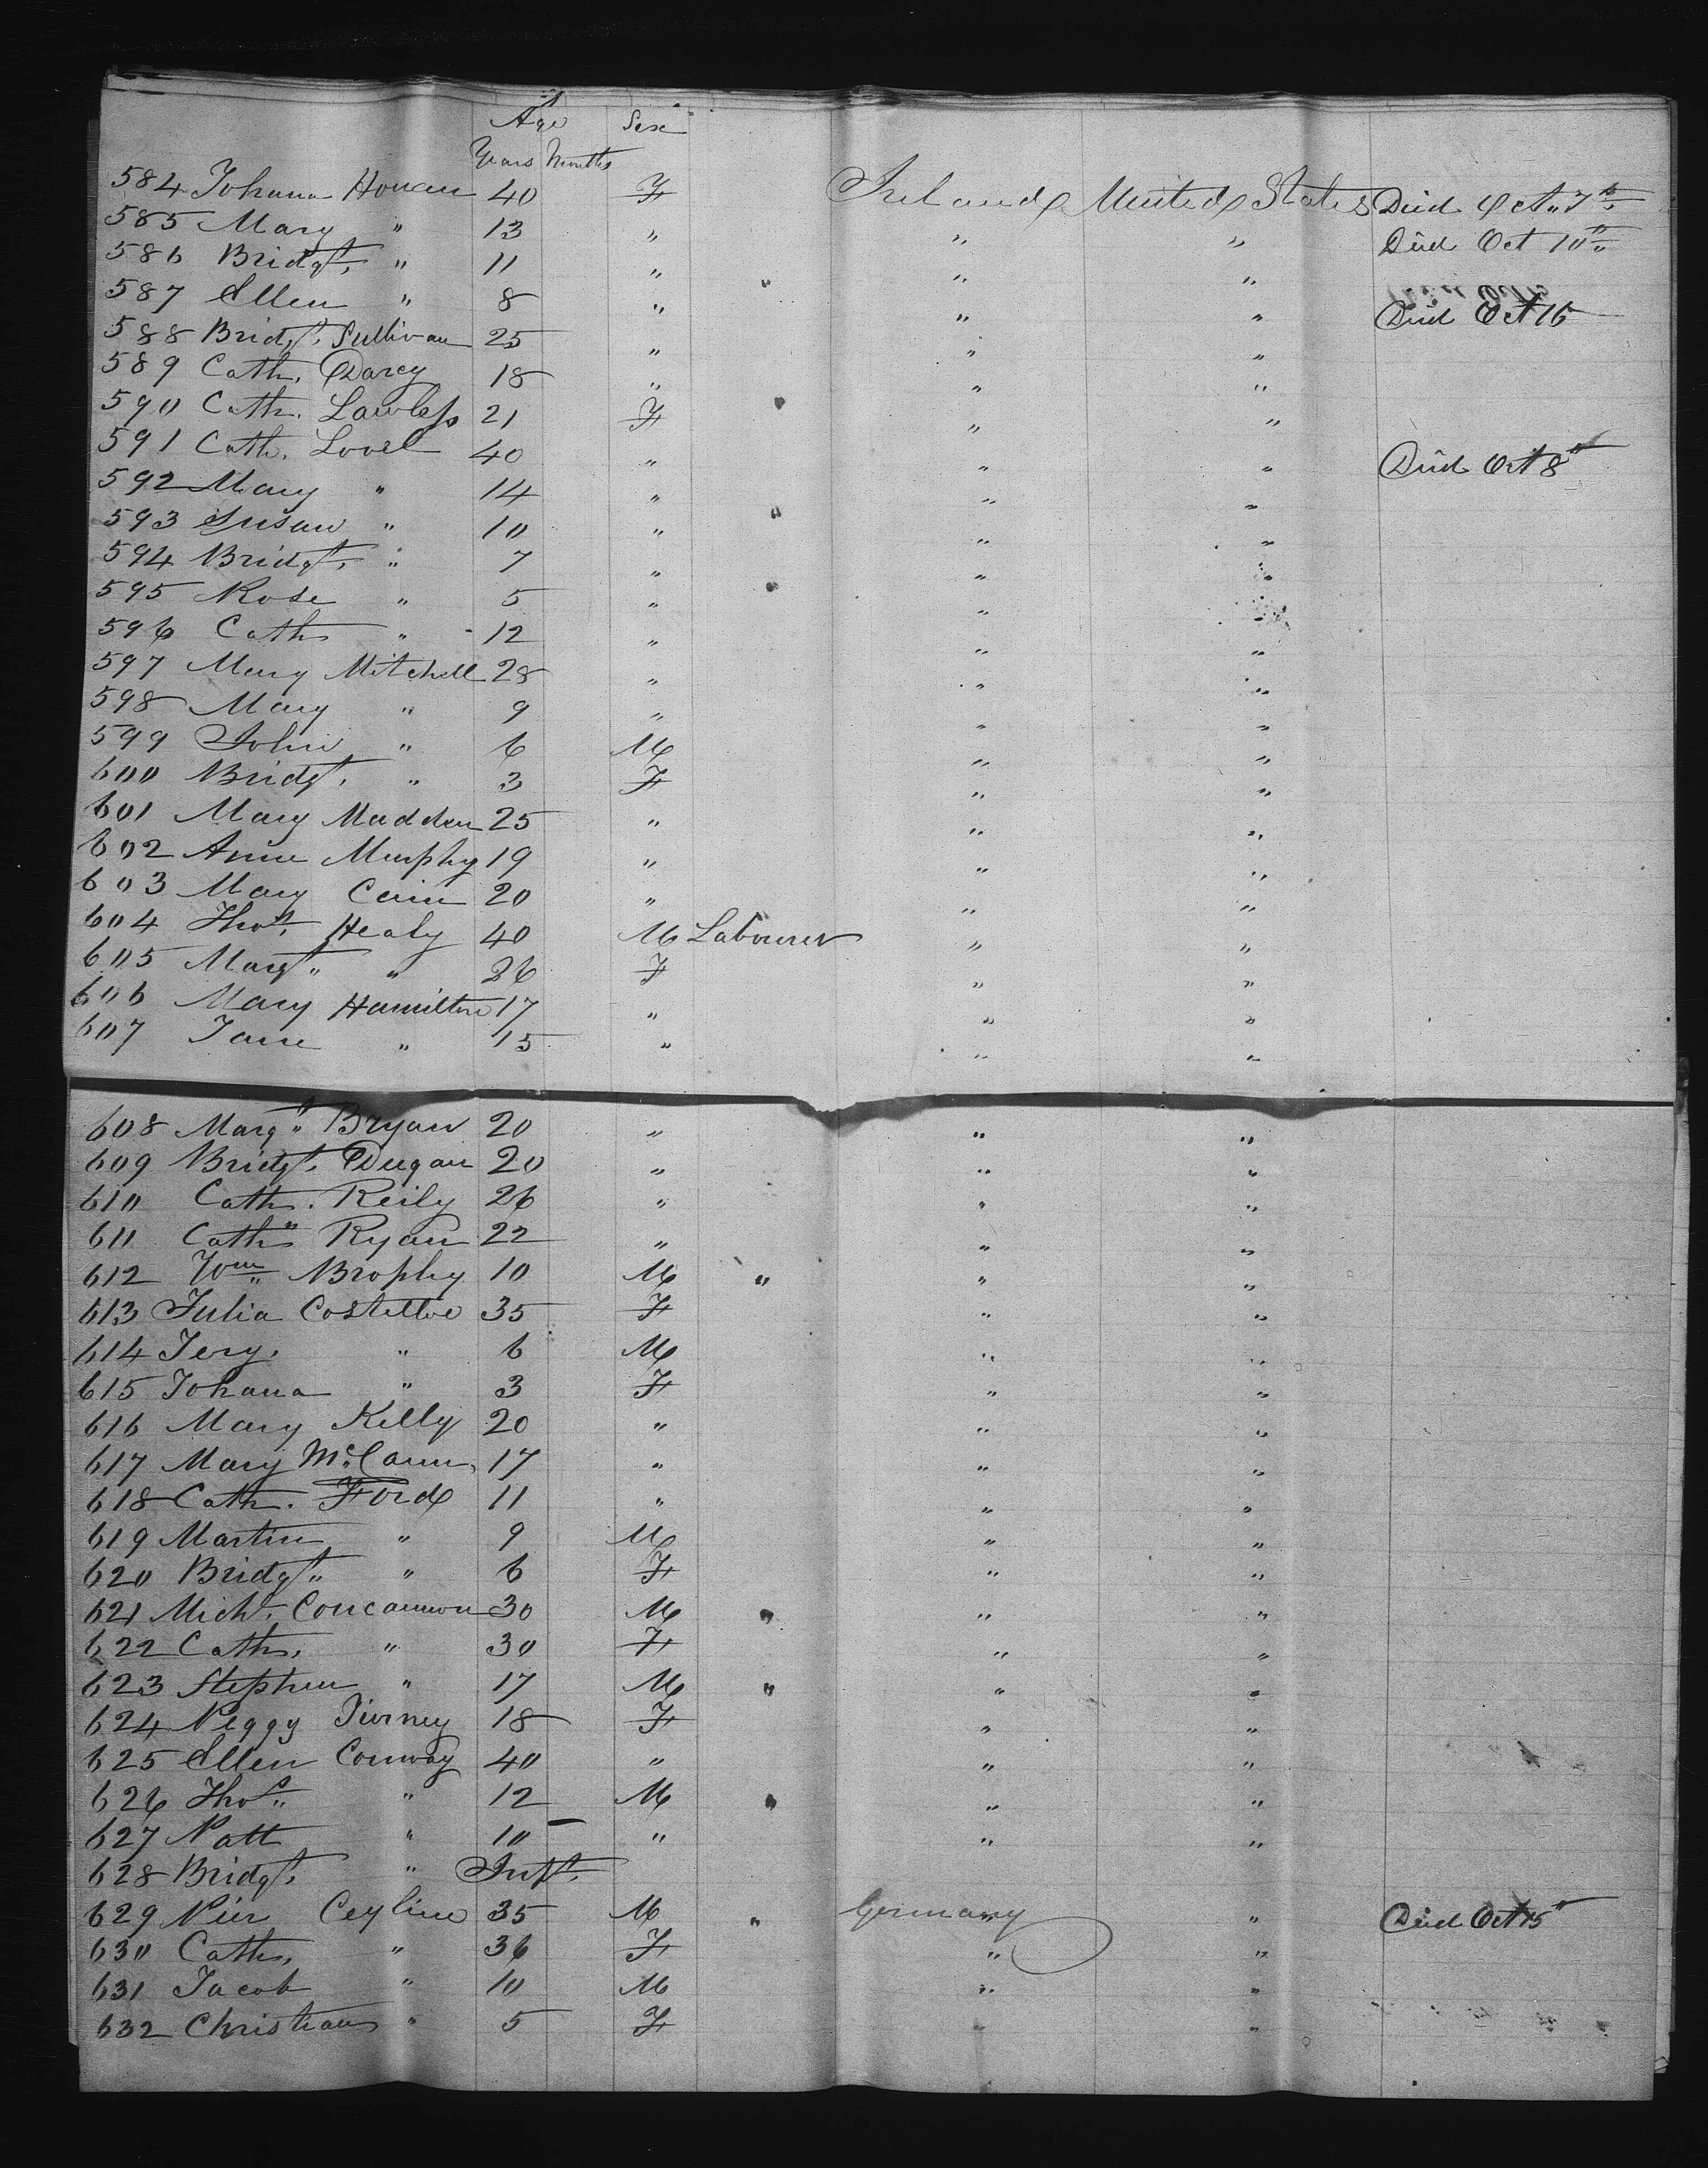 Age Sex
Years Months
584 Johana Honan 40 F Ireland United States Died Oct 7th
585 Mary " 13 " " " Died Oct 10th
586 Bridgt. " 11 " " " "
587 Ellen " 8 " " " Died Oct 15
588 Bridgt. Sullivan 25 " " "
589 Cath. Darcy 18 " " "
590 Cath. Lawless 21 F " "
591 Cath. Lovel 40 " " " Died Oct 8th
592 Mary " 14 " " "
593 Susan " 10 " " " "
594 Bridgt. " 7 " " "
595 Rose " 5 " " "
596 Cath " 12 " " "
597 Mary Mitchell 28 " " "
598 Mary " 9 " " "
599 John " 6 M " "
600 Bridgt. " 3 F " "
601 Mary Madden 25 " " "
602 Anne Murphy 19 " " "
603 Mary Cain 20 " " "
604 Thos. Healy 40 M Labourer " "
605 Margt. " 26 F " "
606 Mary Hamilton 17 " " "
607 Jane " 15 " " "
608 Margt. Bryan 20 " " "
609 Bridgt. Dugan 20 " " "
610 Cath. Reily 26 " " "
611 Cath Ryan 22 " " "
612 Wm. Brophy 10 M " " "
613 Julia Costelloe 35 F " "
614 Jery. " 6 M " "
615 Johana " 3 F " "
616 Mary Kelly 20 " " "
617 Mary McCann 17 " " "
618 Cath. Ford 11 " " "
619 Martin " 9 M " "
620 Bridgt. " 6 F " "
621 Michl. Concannon 30 M " " "
622 Cath. " 30 F " "
623 Stephen " 17 M " " "
624 Peggy Tierney 18 F " "
625 Ellen Conway 40 " " "
626 Thos. " 12 M " " "
627 Patt " 10 " " "
628 Bridgt. " Inft.
629 Pier Ceyline 35 M " Germany " Died Oct 15th
630 Cath. " 36 F " "
631 Jacob " 10 M " "
632 Christian " 5 F " "